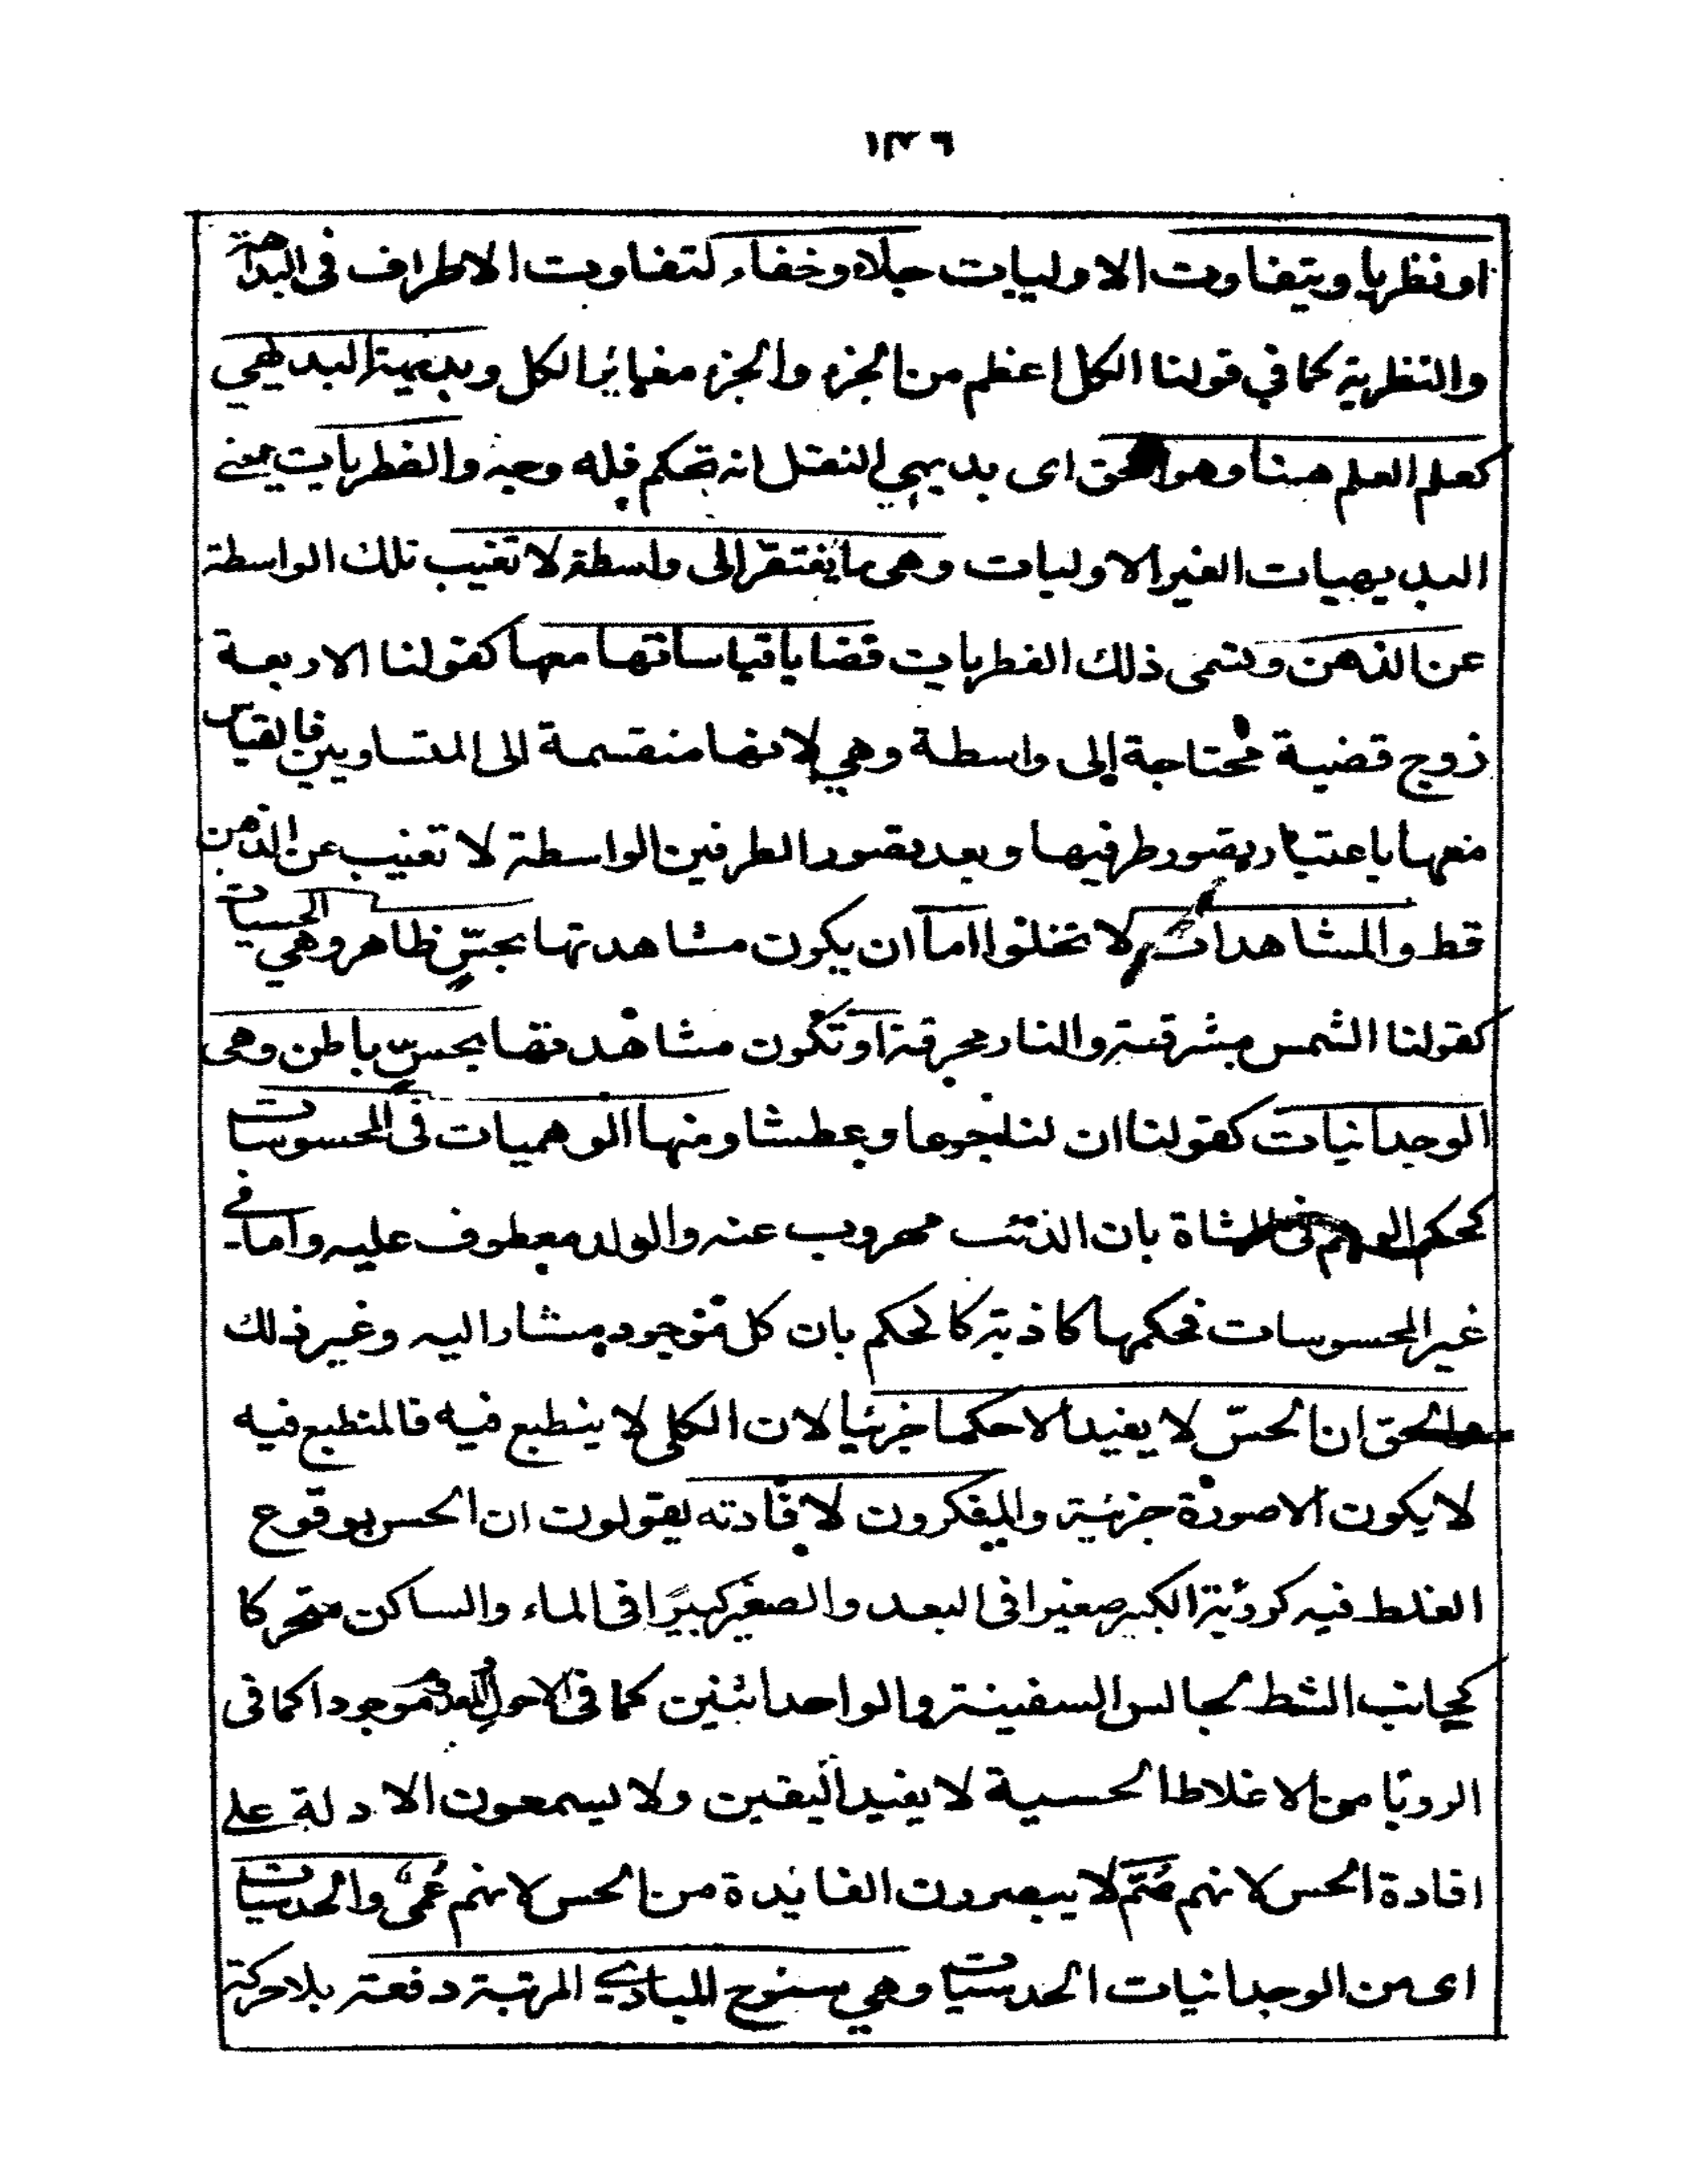 او نظريا ويتفاوت الاوليات جلاء وخفاء لتفاوت الاطراف فى البداهة
والنظرية كما في قولنا الكل اعظم من الجزء والجزء مغاير الكل وبديهية البديهي
كعلم العلم هنا وهو الحق اى بديهي لنقل انه تحكم فله وجه والفطريات يعنے
البديهيات الغير الاوليات وهى ما يفتقر إلى واسطة لا تغيب تلك الواسطة
عن الذهن وتسمى ذلك الفطريات قضايا قياساتها معها كقولنا الاربعة
زوج قضية محتاجة إلى واسطة وهي لانها منقسمة الى المتساويين فالقياس
معها باعتبار تصور طرفيها وبعد تصور الطرفين الواسطة لا تغيب عن الذهن
قط والمشاهدات لا تخلوا اما ان يكون مشاهدتها بحسّ ظاهر وهي الحسيات
كقولنا الشمس مشرقة والنار محرقة او تكون مشاهدتها بحسّ باطن وهى
الوجدانيات كقولنا ان لنا جوعا وعطشا ومنها الوهميات فى المحسوسات
كحكم الوهم فى الشاة بان الذئب مهروب عنه والولد معطوف عليه واما في
غير المحسوسات فحكمها كاذبة كالحكم بان كل موجود مشار اليه وغير ذلك
والحق ان الحسّ لا يفيد الا حكما جزئيا لان الكلى لا ينطبع فيه فالمنطبع فيه
لا يكون الا صورة جزئية والمفكرون لافادته يقولون ان الحس بوقوع
الغلط فيه كروئية الكبير صغيرا فى البعد والصغير كبيرًا فى الماء والساكن متحركا
كجانب الشط لجالس السفينة والواحد اثنين كما فى الاحول المعدوم موجودا كما فى
الرويا من الاغلاط الحسية لا يفيد اليقين ولا يسمعون الادلة على
افادة الحس لانهم صُمّ لا يبصرون الفايدة من الحس لانهم عُمىٌ والحدسيات
اى من الوجدانيات الحدسيات وهي سنوح المبادي المرتبة دفعة بلا حركة